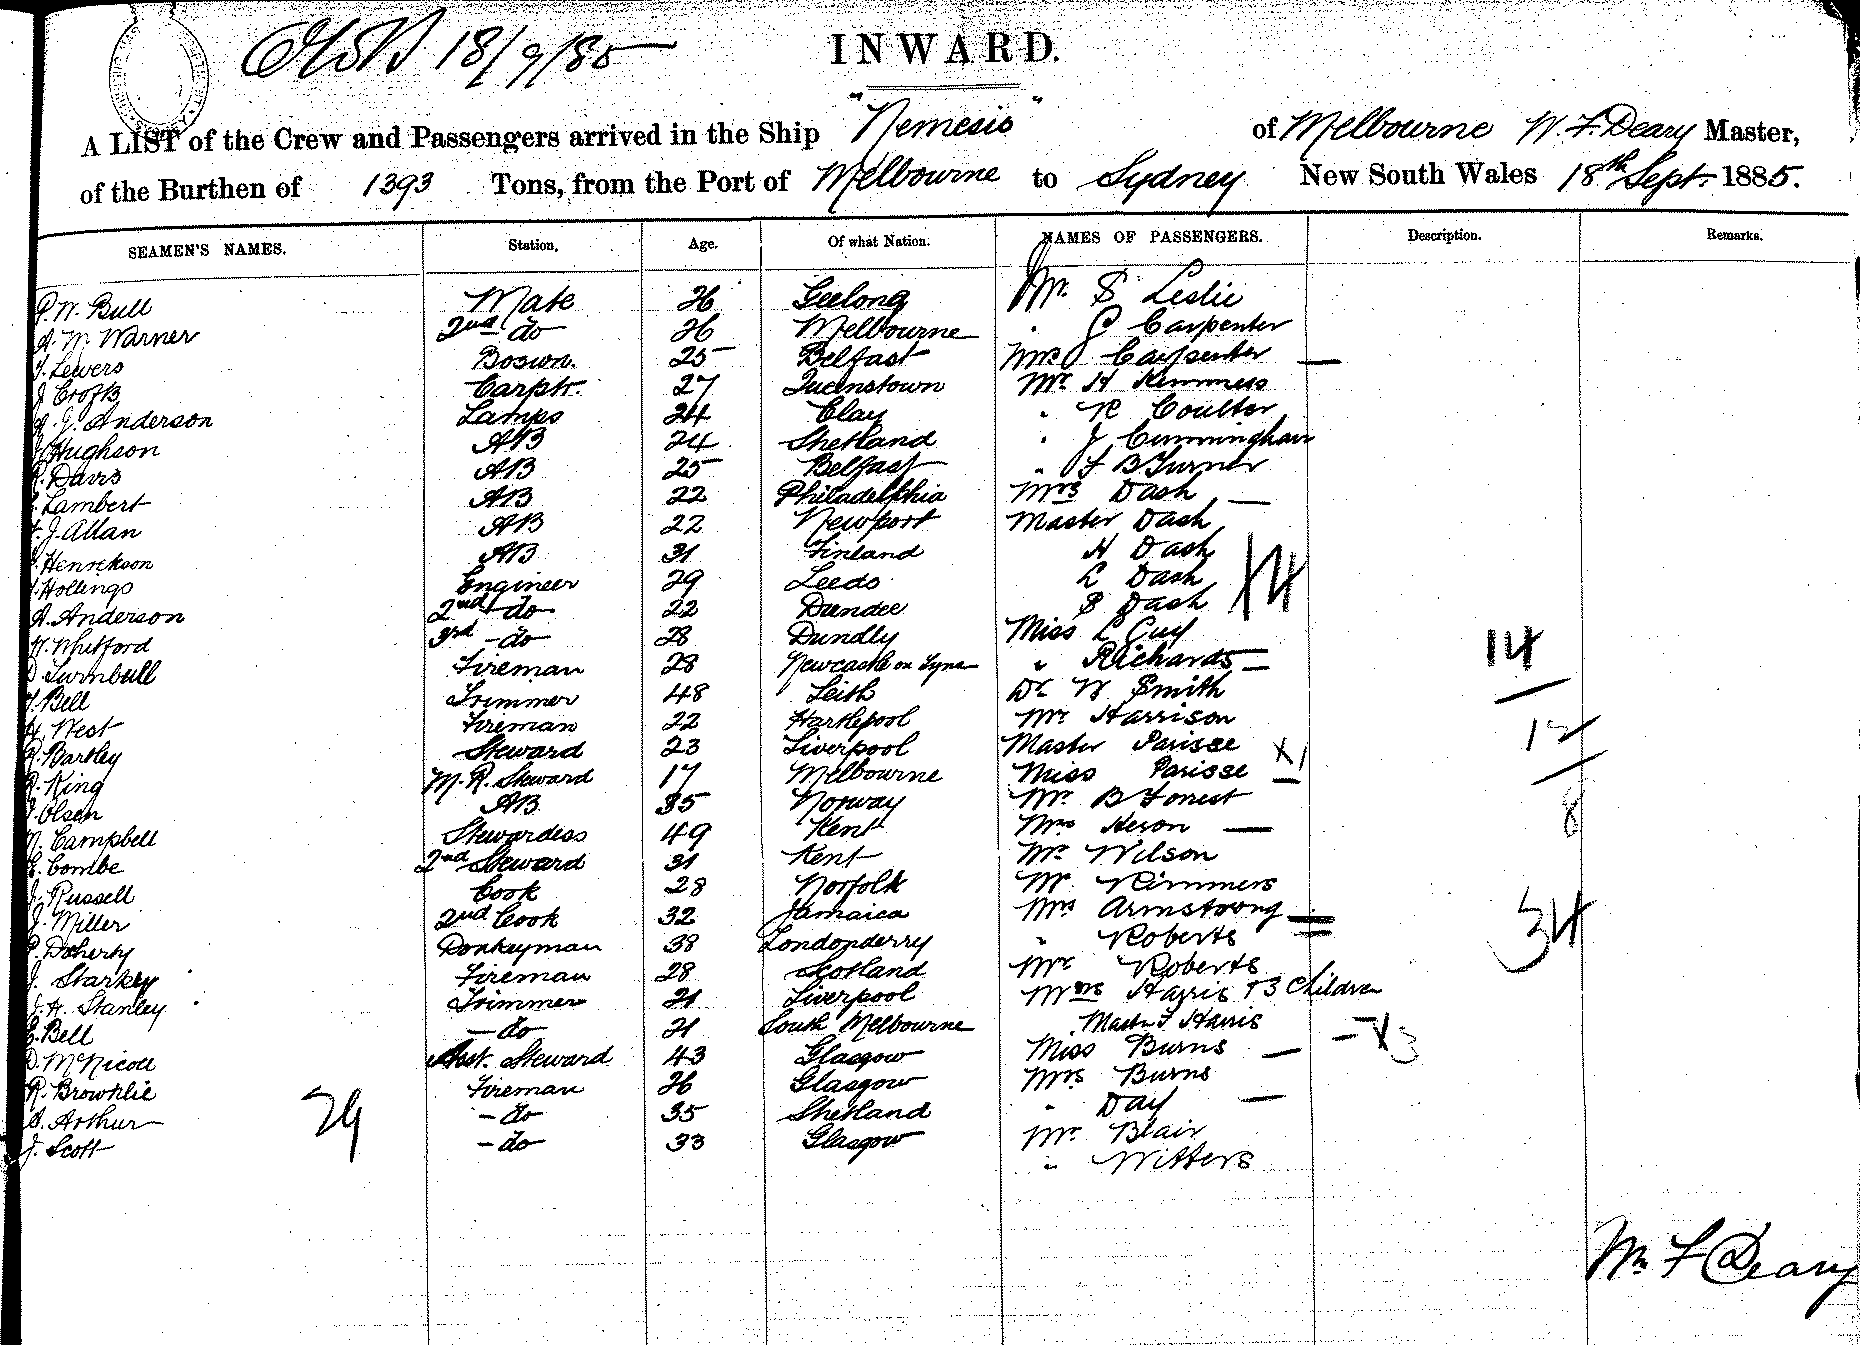 18/9/85
INWARD.
A LIST of the Crew and Passengers arrived in the Ship "Nemesis" of Melbourne W. F. Deary Master,
of the Burthen of 1393 Tons, from the Port of Melbourne to Sydney New South Wales 18th Sept. 1885.
SEAMEN'S NAMES. Station. Age. Of what Nation. NAMES OF PASSENGERS. Description. Remarks.
P. W. Bull Mate 26 Geelong Mr. S Leslie
A. M Warner 2nd do 26 Melbourne " J Carpenter
Lewers Bosun. 25 Belfast Mrs Carpenter —
J Crofts Carptr. 27 Queenstown Mr H Kemmess
J. Anderson Lamps 24 Clay " R Coulter
Hughson AB 24 Shetland " J Cunningham
R. Davis AB 25 Belfast " F B Turner
Lambert AB 22 Philadelphia Mrs Dash —
J. Allan AB 22 Newport Master Dash
Henrekson AB 31 Finland H Dash
Hollings Engineer 29 Leeds L Dash X4
A. Anderson 2nd do 22 Dundee S Dash
W. Whitford 3rd - do 28 Dundly Miss L Guy
D Turnbull Fireman 28 Newcastle on Tyne " Richards — 14
T. Bell Trimmer 48 Leith Dr W Smith
H. West Fireman 22 Hartlepool Mr Harrison
R. Bartley Steward 23 Liverpool Master Parisse X1 12
R. King M. R. Steward 17 Melbourne Miss Parisse —
J. Olsen AB 35 Norway Mr B Forrest 8
M. Campbell Stewardess 49 Kent Mrs Heron —
E. Combe 2nd Steward 31 Kent Mr Wilson
J. Russell Cook 28 Norfolk Mr Rimmers
J. Miller 2nd Cook 32 Jamaica Mrs Armstrong — 34
P. Doherty Donkeyman 38 Londonderry " Roberts —
J. Starkey Fireman 28 Scotland Mr Roberts
J. H. Stanley Trimmer 21 Liverpool Mrs Harris & 3 Children
E. Bell - do 21 South Melbourne Mastr F Harris
D. McNicoll Asst. Steward 43 Glasgow Miss Burns — — X3
R. Brownlie Fireman 26 Glasgow Mrs Burns
A. Arthur - do 35 Shetland " Day —
J. Scott 29 - do 33 Glasgow Mr Blair
" Witters
Wm F Deary